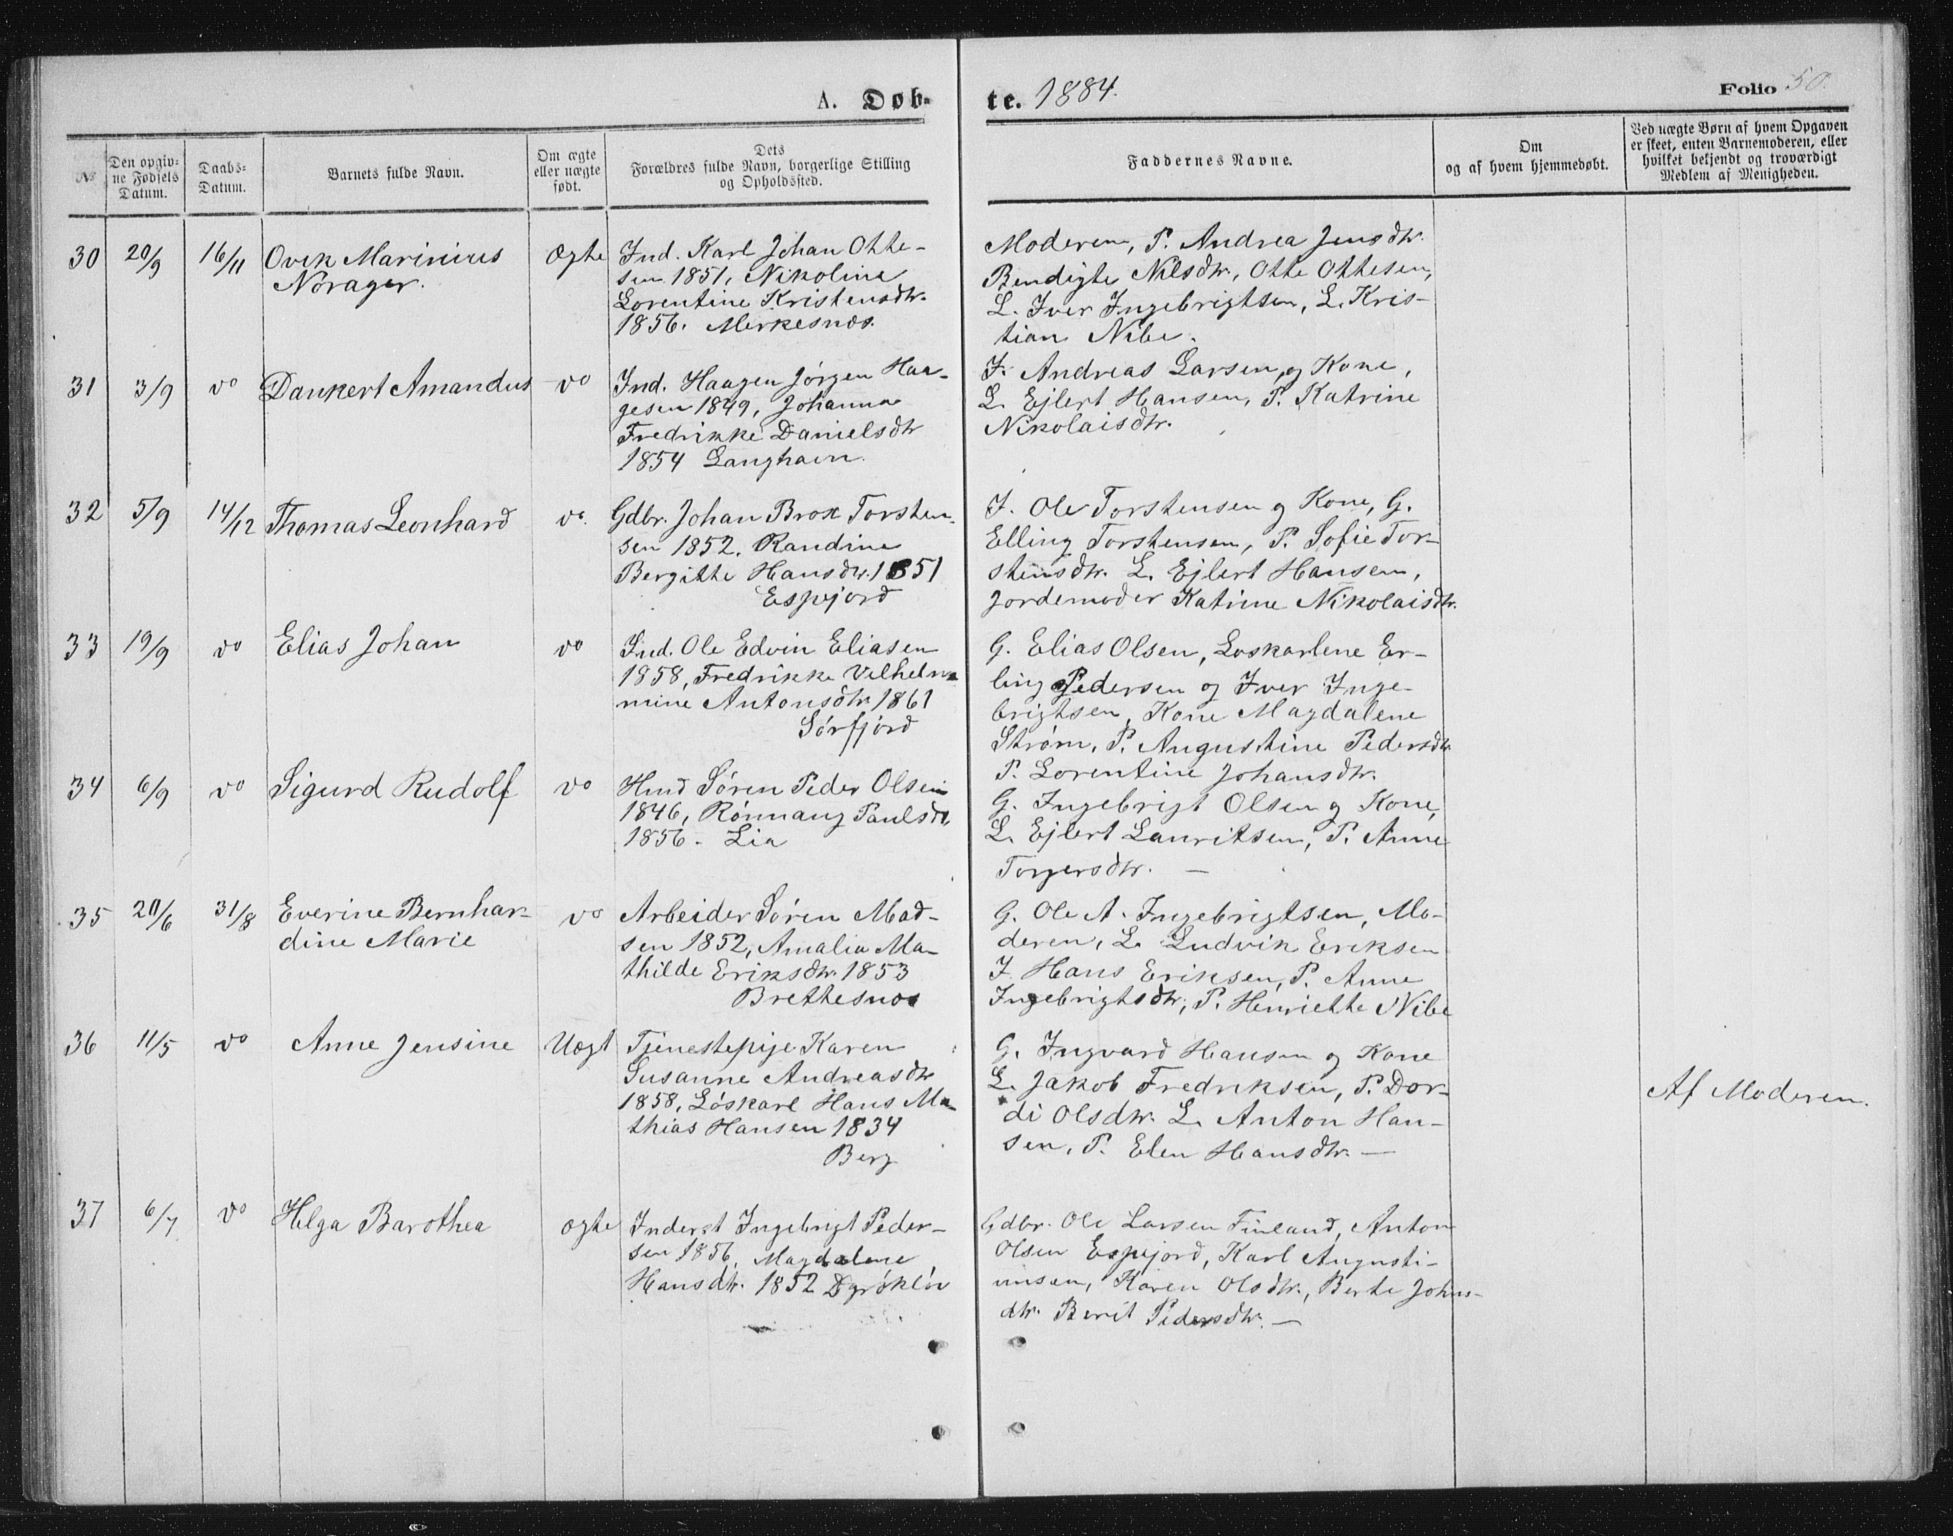 A. Døb-
te. 1884.
Folio 50.
No
Den opgiv-
ne Fødsels
Datum.
Daabs-
Datum.
Barnets fulde Navn.
Om ægte
eller uægte
født.
Dets
Forældres fulde Navn, borgerlige Stilling
og Opholdssted.
Faddernes Navne.
Om
og af hvem hjemmedøbt.
Ved uægte Børn af hvem Opgaven
er skeet, enten Barnemoderen, eller
hvilket bekjendt og troværdigt
Medlem af Menigheden.
30 20/9 16/11 Ovek Marinius
Nörager.
Ægte
Ind. Karl Johan Otte-
sen 1851, Nikoline
Lorentine Kristensdtr.
1856. Merkesnæs.
Moderen, P. Andrea Jensdtr.
Bendigte Nilsdtr, Otte Ottesen,
L. Iver Ingebrigtsen, L. Kris-
tian Nibe.
31 3/9 do Dankert Amandus do
Ind. Haagen Jörgen Haa-
gesen 1849, Johanna
Fredrikke Danielsdtr
1854 Langhavn.
I. Andreas Larsen og Kone,
L. Ejlert Hansen, P. Katrine
Nikolaisdtr.
32 5/9 14/12 Thomas Leonhard do.
Gdbr. Johan Brox Torsten-
sen 1852, Randine
Bergitte Hansdtr. 1851
Espejord
I. Ole Torstensen og Kone, G.
Elling Torstensen, P. Sofie Tor-
stensdtr. L. Ejlert Hansen,
Jordemoder Katrine Nikolaisdtr.
33 19/9 do Elias Johan do
Ind. Ole Edvin Eliasen
1858, Fredrikke Vilhelm
mine Antonsdtr. 1861
Sörfjörd
G. Elias Olsen, Loskarlene Er-
ling Pedersen og Iver Inge-
brigtsen, Kone Magdalene
Strøm, P. Augustine Pedersdtr
P. Lorentine Johansdtr.
34 6/9 do Sigurd Rudolf do
Hmd Sören Peder Olsen
1846, Rönnaug Paulsdtr
1856. Lia
G. Ingebrigt Olsen og Kone,
L. Ejlert Lauritsen, P. Anne
Torgersdtr. —
35 20/6 31/8 Everine Bernhar-
dine Marie
do
Arbeider Sören Mad-
sen 1852, Amalia Ma-
thilde Eriksdtr. 1853
Brettesnæs
G. Ole A. Ingebrigtsen, Mo-
deren, L. Ludvik Eriksen
I. Hans Eriksen, P. Anne
Ingebrigtsdtr, P. Henriette Nibe
36 11/5 do Anne Jensine Uægt
Tjenestepige Karen
Susanne Andreasdtr
1858, Löskarl Hans Ma-
thias Hansen 1834
Berg
G. Ingvard Hansen og Kone
L. Jakob Fredriksen, P. Dor-
di Olsdtr. L. Anton Han-
sen, P. Elen Hansdtr. —
Af Moderen.
37 6/7 do Helga Barothea ægte
Inderst Ingebrigt Peder-
sen 1856, Magdalene
Hansdtr. 1852 Dyröklöv
Gdbr. Ole Larsen Finland, Anton
Olsen Espejord, Karl Augusti-
nusen, Karen Olsdtr., Berte Johns-
dtr. Berit Pedersdtr. —